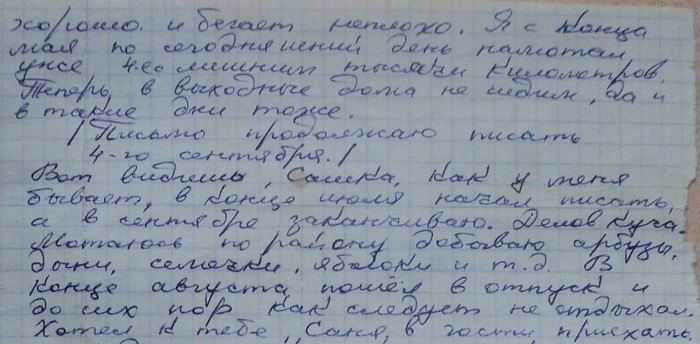 хорошо и бегает неплохо. Я с конца
мая по сегодняшний день намотал
уже 4 с лишним тысячи километров.
Теперь в выходные дома не сидим, да и
в такие дни тоже.
/Письмо продолжаю писать
4-го сентября./
Вот видишь, Сашка, как у меня
бывает, в конце июля начал писать,
а в сентябре заканчиваю. Делов куча.
Мотаюсь по району добываю арбузы,
дыни, семечки, яблоки и т.д. В
конце августа пошёл в отпуск и
до сих пор как следует не отдыхал.
Хотел к тебе, Саня, в гости приехать.